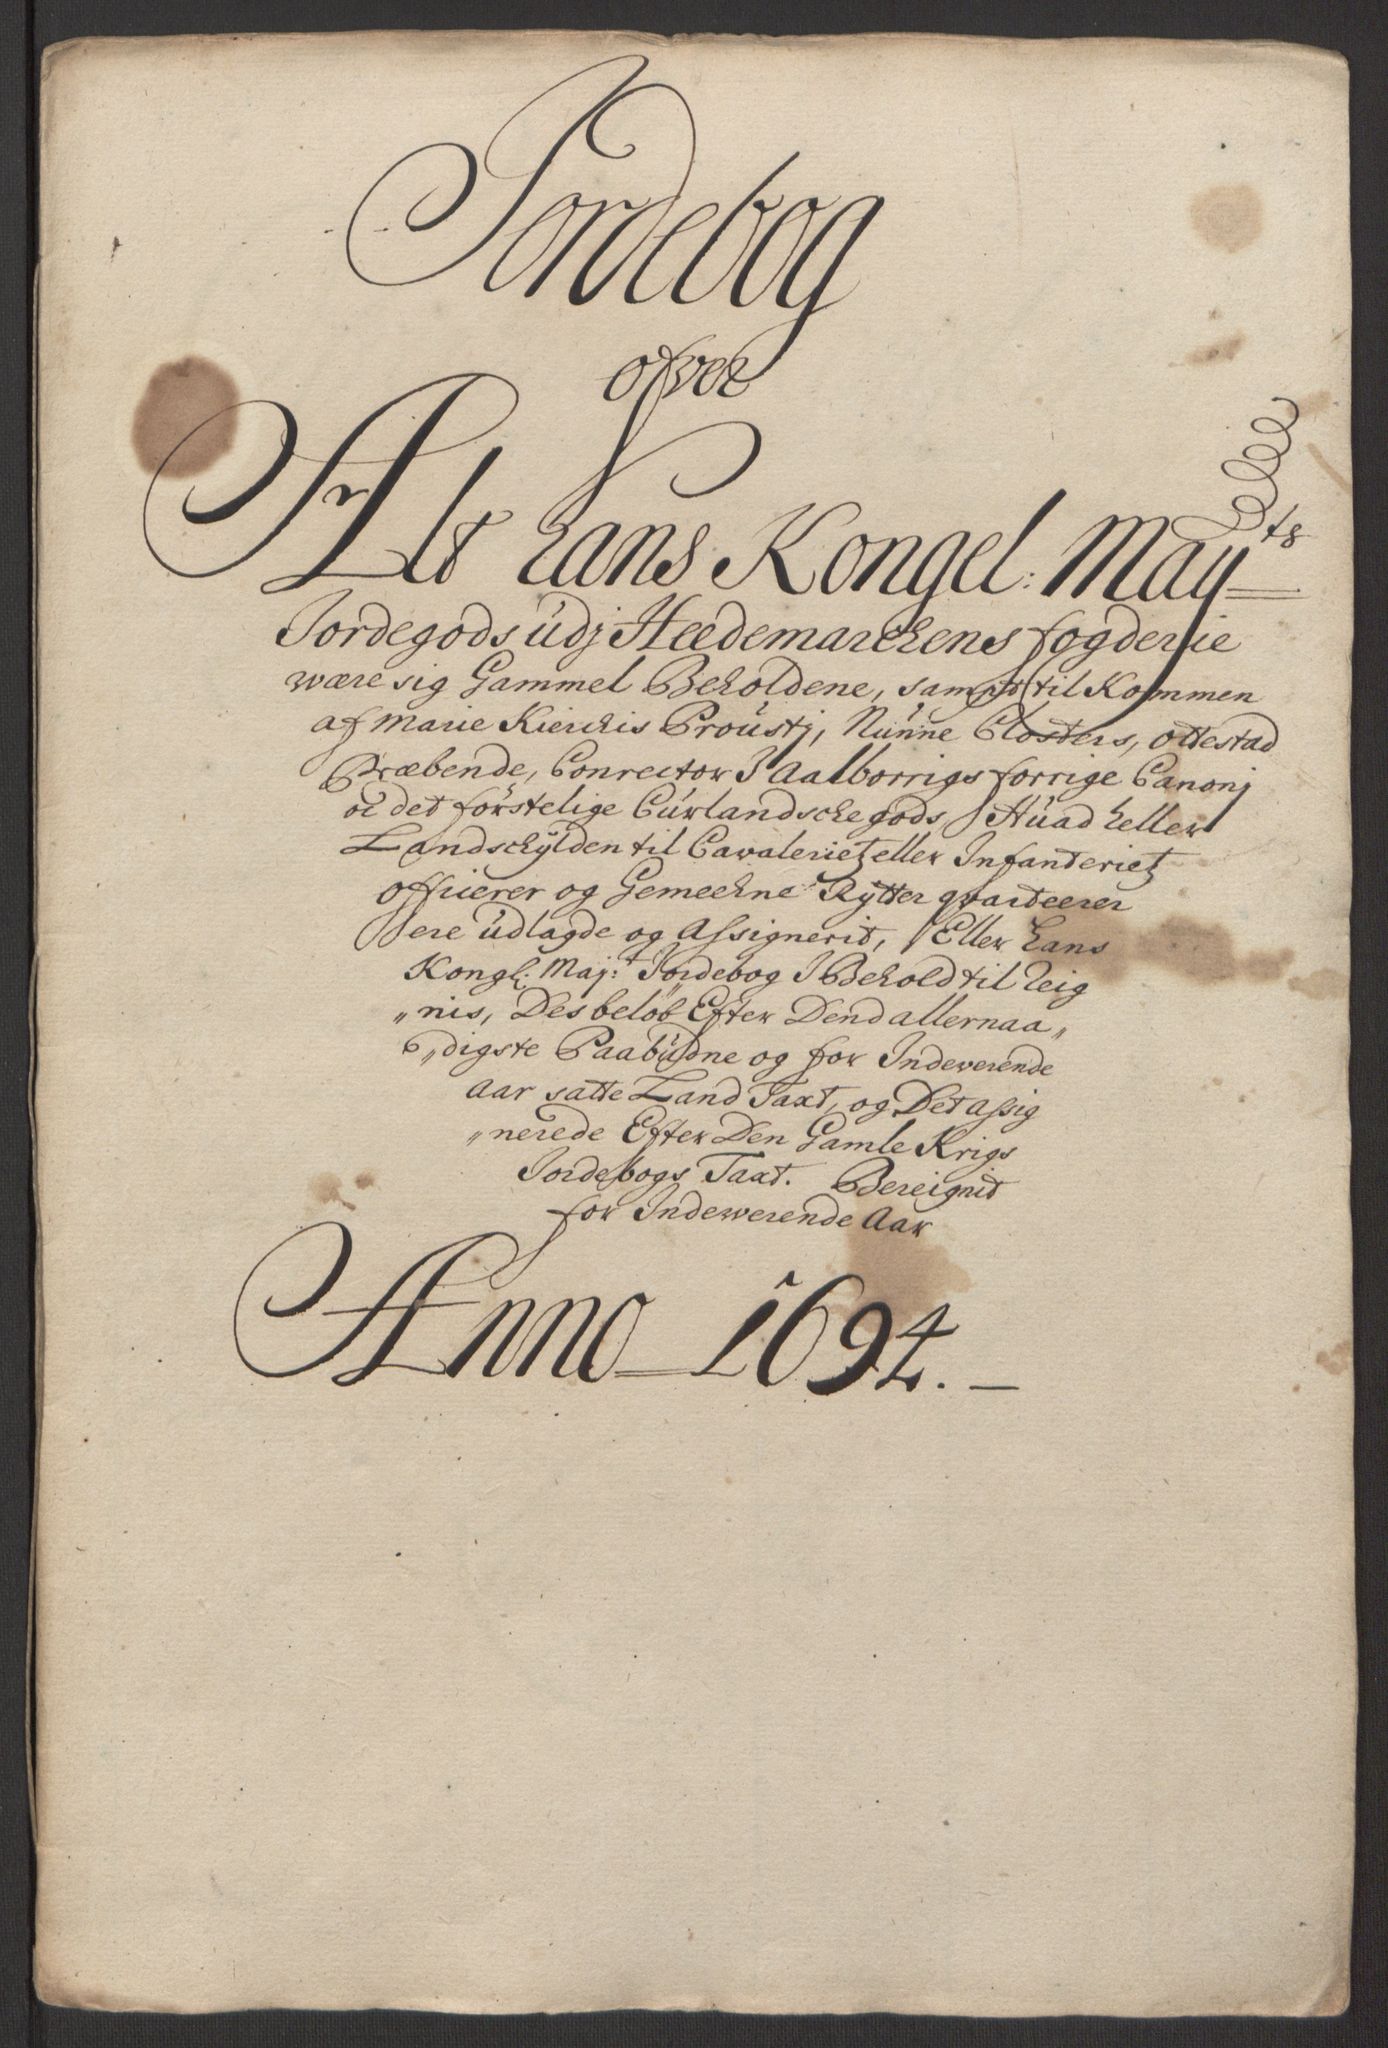 Jordebog
ofver
Alt hans Kongel: May ts
Jordegods udj Hedemarchens fogderie
være sig Gammel Beholdene, sampt til Kommen
af Marie Kierchis Proustj, Nunne Closters, ottestad
Præbende, Conrector I Aalborrigs forrige Canonj
oc det förstelige Curlandsche gods, Huad heller
Landschÿlden til Cavalerietz eller Infanterietz
officerer og Gemeehne Rytter qvarteerer
ere udlagde og Assignerit, Eller hans
Kongl: Maj:t Jordebog I Behold til Reig
„nis, Des beløb Efter Dend allernaa„
„digste Paabudne og for Indeverende
Aar satte Land Taxt, og Det assig
„nerede Efter Den Gamle Krigs
Jordebogs Taxt. Bereignit
for Indewerende Aar
Anno 1694.